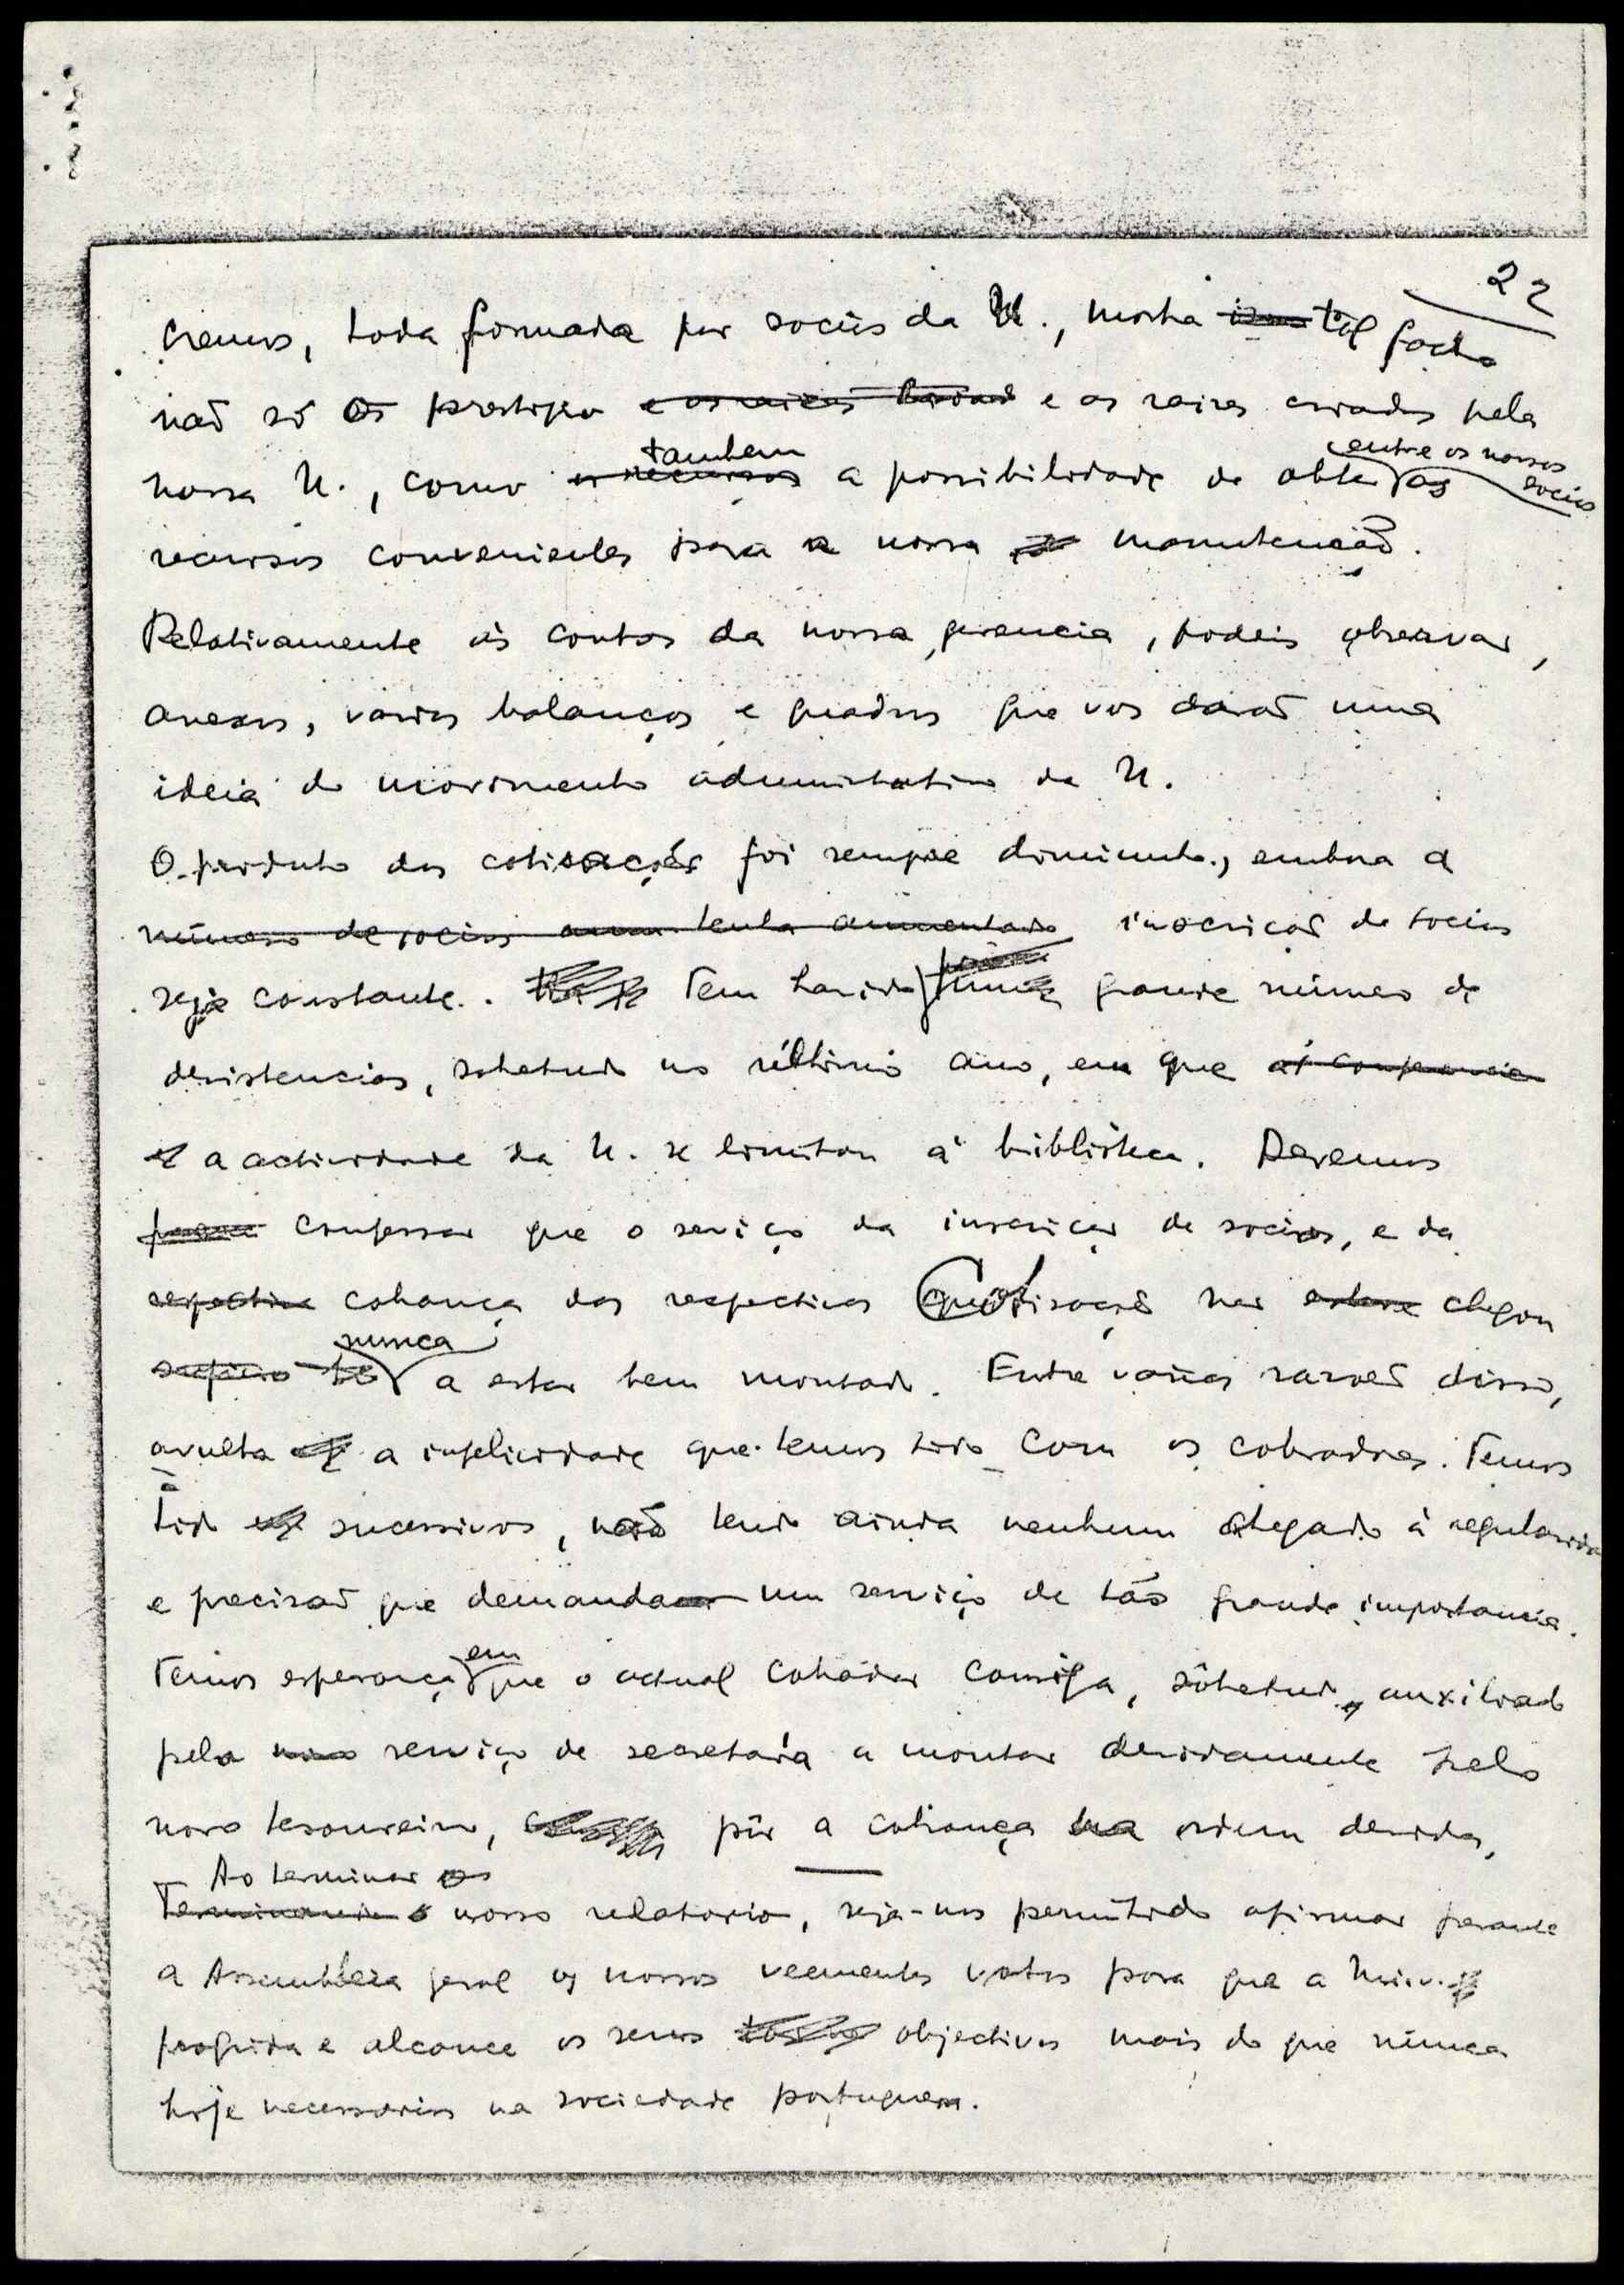 22
cremos, toda formada por socios da U., mostra tal facto
não só o prestigio e as raizes criadas pela
nossa U., como tambem a possibilidade de obter entre os nossos socios os
recursos convenientes para a nossa manutenção.
Relativamente ás contas da nossa gerencia, podeis observar,
anexos, varios balanços e quadros que vos darão uma
ideia do movimento administrativo da U.
O producto das cotisações foi sempre diminuto, embora a
número de socios tenha aumentado inscrição de socios
seja constante. Tem havido grande número de
desistencias, sobretudo no último ano, em que
a actividade da U. se limitou á biblioteca. Devemos
confessar que o serviço da inscrição de socios, e da
respectiva cobrança das respectivas Cotisações não chegou
nunca a estar bem montado. Entre varias razões disso,
avulta a infelicidade que temos tido com os cobradores. Temos
tido sucessivos, não tendo ainda nenhum chegado á regularida
e precisão que demanda um serviço de tão grande importancia.
Temos esperança em que o actual cobrador consiga, sobretudo, auxiliado
pelo serviço de secretaria a montar devidamente pelo
novo tesoureiro, pôr a cobrança na ordem devida.
Ao terminar o
Terminando o nosso relatorio, seja-nos permitido afirmar perante
a Assembleia geral os nossos veementes votos para que a Univ.
progrida e alcance os seus objectivos mais do que nunca
hoje necessarios na sociedade portuguesa.